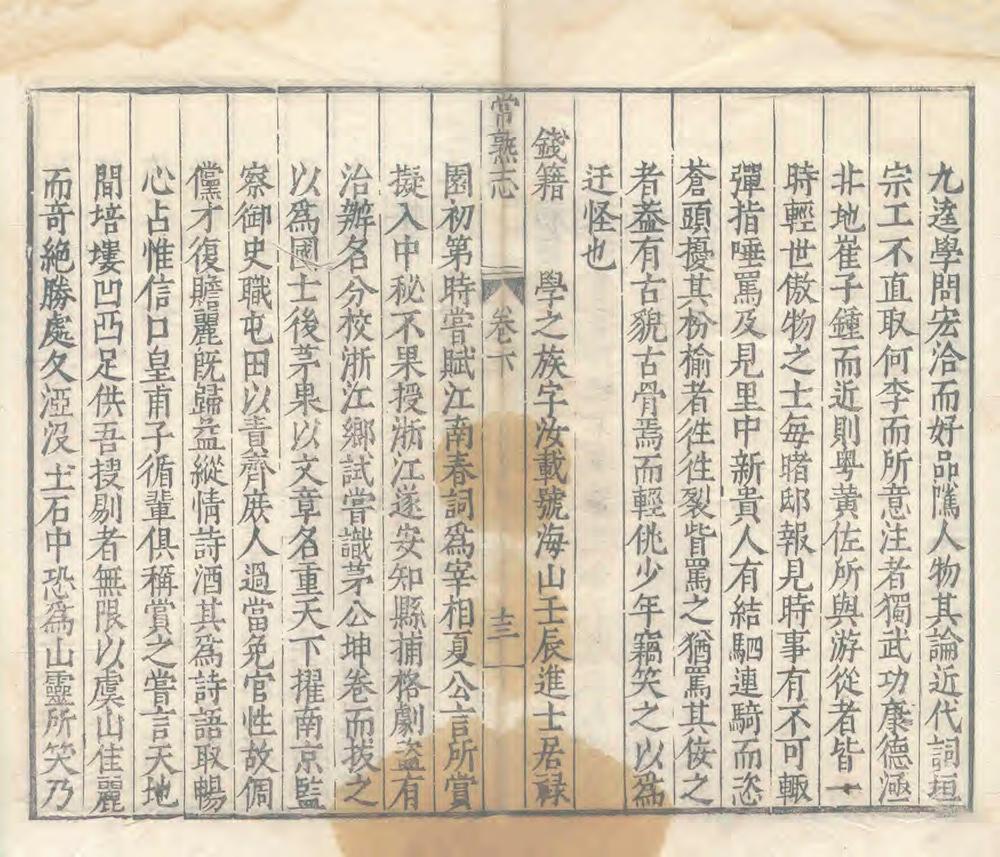 九逵學問宏洽而好品隲人物其論近代詞垣
宗工不直取何李而所意注者獨武功康德涵
北地崔子鍾而近則粤黄佐所與游從者皆一
時輕世傲物之士每睹邸報見時事有不可輙
彈指唾罵及見里中新貴人有結駟連騎而恣
蒼頭擾其枌榆者徃徃裂眥罵之猶罵其佞之
者葢有古貌古骨焉而輕佻少年竊笑之以爲
迂怪也
錢籍 學之族字汝載號海山壬辰進士居禄
常熟志 卷下 十三
園初第時嘗賦江南春詞爲宰相夏公言所賞
擬入中秘不果授浙江遂安知縣捕格劇盗有
治辦名分校浙江鄉試嘗識茅公坤卷而拔之
以爲國士後茅果以文章名重天下擢南京監
察御史職屯田以責齊庶人過當免官性故倜
儻才復贍麗既歸益縱情詩酒其爲詩語取暢
心占惟信口皇甫子循輩俱稱賞之嘗言天地
間培塿凹凸足供吾搜剔者無限以虞山佳麗
而奇絶勝處久湮沒土石中恐爲山靈所笑乃